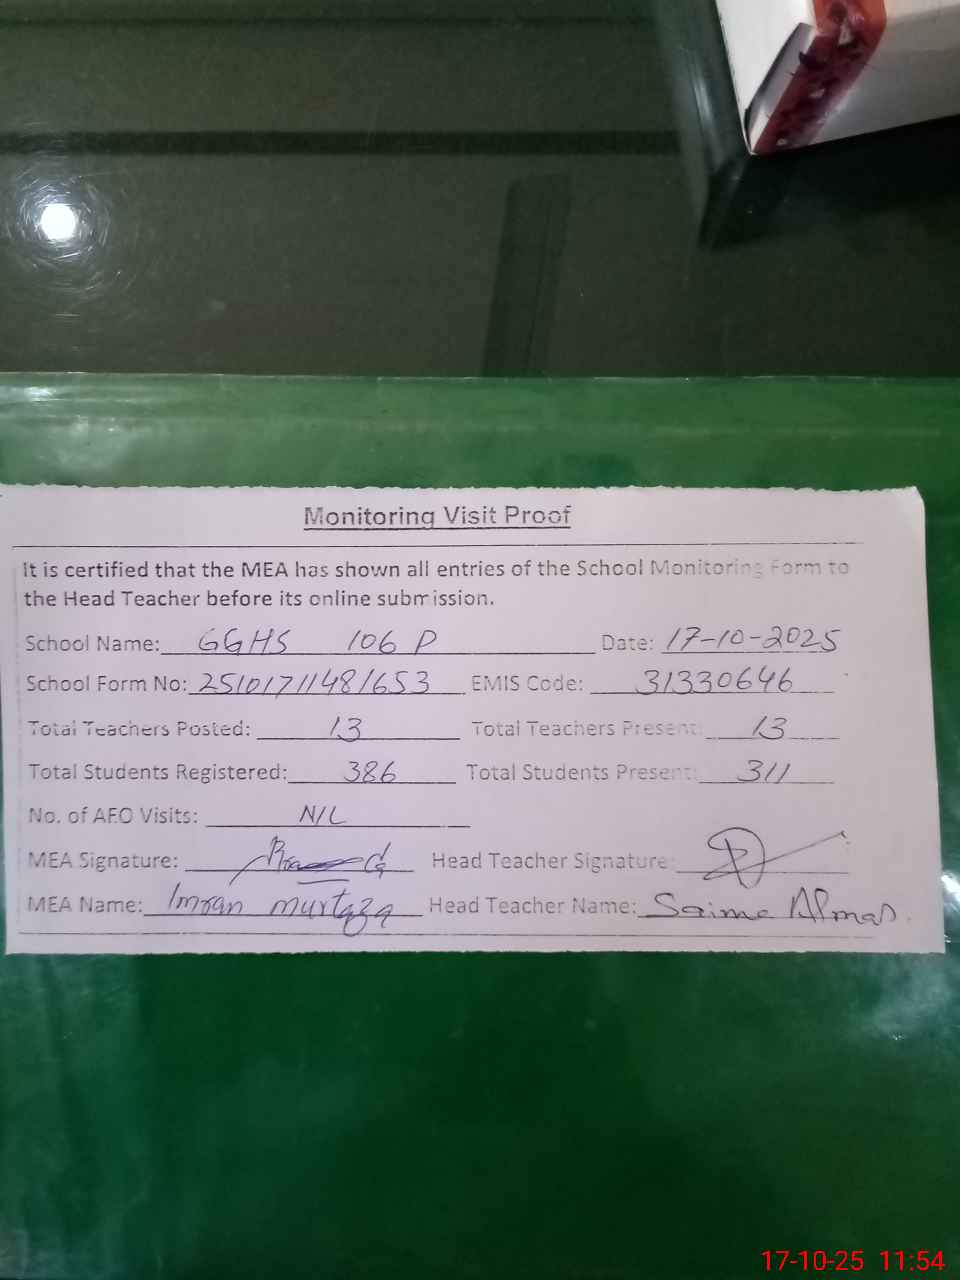 Monitoring Visit Proof
It is certified that the MEA has shown all entries of the School Monitoring Form to
the Head Teacher before its online submission.
School Name: GGHS 106 P Date: 17-10-2025
School Form No: 25101711481653 EMIS Code: 31330646
Total Teachers Posted: 13 Total Teachers Present: 13
Total Students Registered: 386 Total Students Present: 311
No. of AEO Visits: NIL
MEA Signature: Head Teacher Signature:
MEA Name: Imran murtaza Head Teacher Name: Saima Almas.
17-10-25 11:54